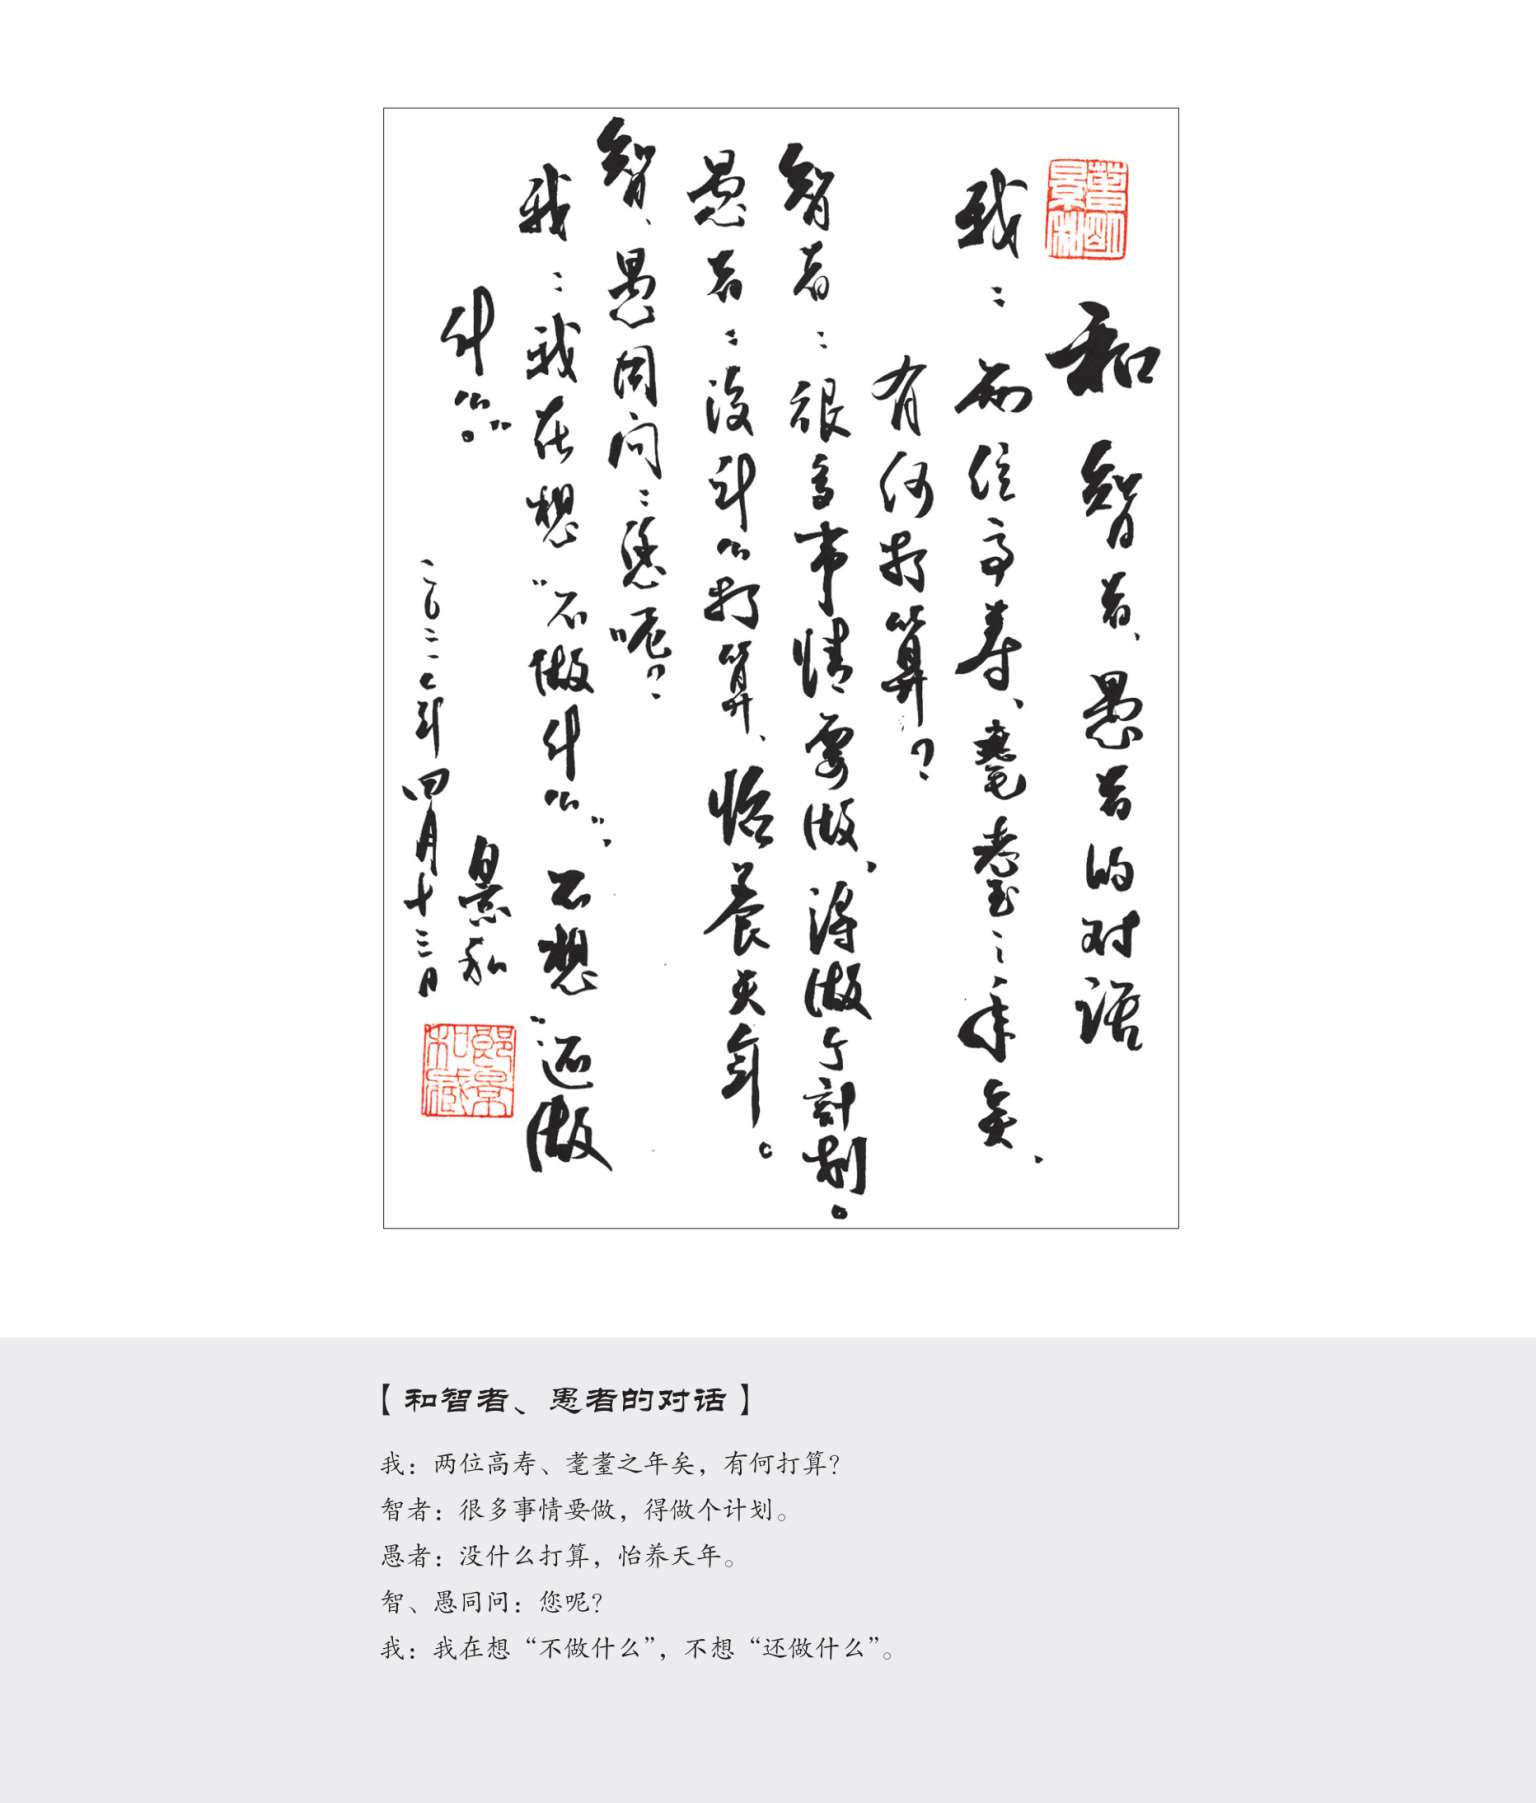 和智者、愚者的对话
我：两位高寿、耄耋之年矣、
有何打算？
智者：很多事情要做、得做个計划。
愚者：没什么打算、怡養天年。
智、愚同问：您呢？
我：我在想“不做什么”、不想“还做
什么”。
景和
年四月十三日
郎景和藏
【和智者、愚者的对话】
我：两位高寿、耄耋之年矣，有何打算？
智者：很多事情要做，得做个计划。
愚者：没什么打算，怡养天年。
智、愚同问：您呢？
我：我在想“不做什么”，不想“还做什么”。